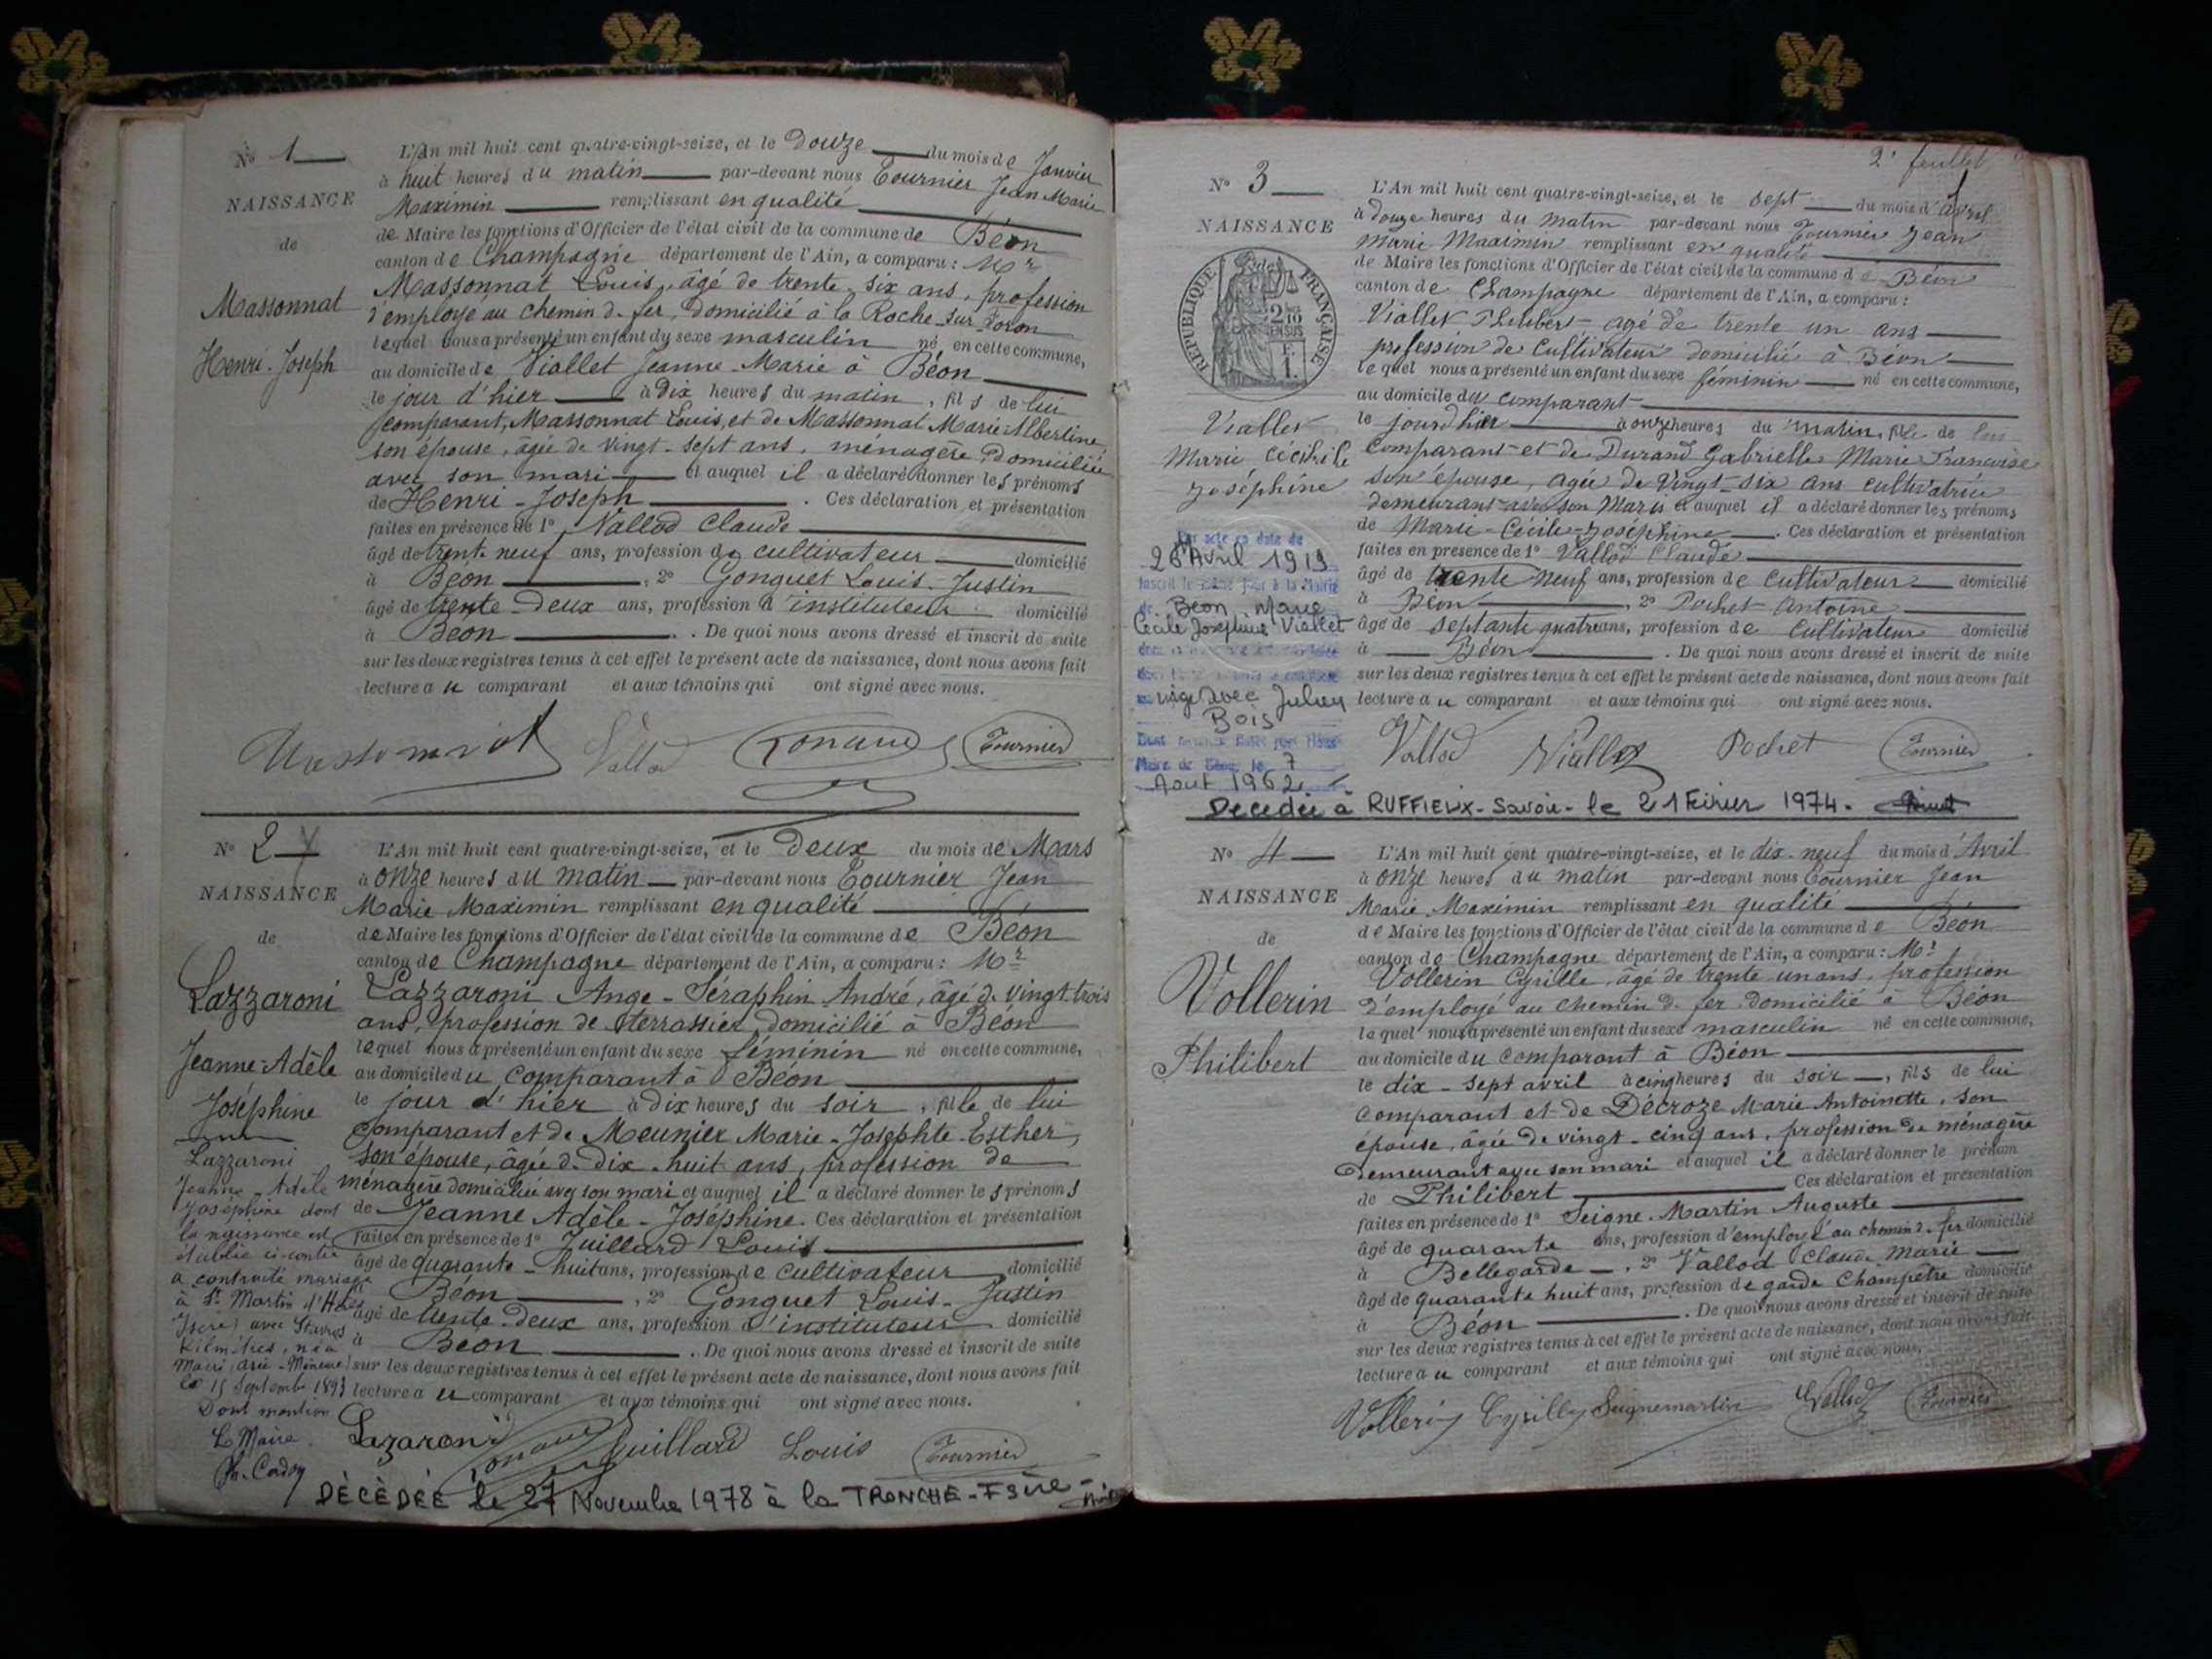 N° 1
NAISSANCE
de
Massonnat
Henri-Joseph
L'An mil huit cent quatre-vingt-seize, et le douze du mois de Janvier
à huit heures du matin par-devant nous Tournier Jean Marie
Maximin remplissant en qualité
de Maire les fonctions d'Officier de l'état civil de la commune de Béon
canton de Champagne département de l'Ain, a comparu : Mr
Massonnat Louis, âgé de trente-six ans, profession
d'employé au chemin d. fer, domicilié à la Roche-sur-Foron
lequel nous a présenté un enfant du sexe masculin né en cette commune,
au domicile de Viallet Jeanne-Marie à Béon
le jour d'hier à dix heures du matin, fils de lui
comparant, Massonnat Louis, et de Massonnat Marie-Albertine
son épouse, âgée de vingt-sept ans, ménagère domiciliée
avec son mari et auquel il a déclaré donner les prénoms
de Henri-Joseph. Ces déclaration et présentation
faites en présence de 1° Vallod Claude
âgé de trente neuf ans, profession de cultivateur domicilié
à Béon, 2° Gonguet Louis-Justin
âgé de trente-deux ans, profession d'instituteur domicilié
à Béon. De quoi nous avons dressé et inscrit de suite
sur les deux registres tenus à cet effet le présent acte de naissance, dont nous avons fait
lecture au comparant et aux témoins qui ont signé avec nous.
Massonnat Vallod Tournier
N° 2
NAISSANCE
de
Lazzaroni
Jeanne-Adèle
Joséphine
Lazzaroni
Jeanne Adèle
Joséphine dont
la naissance est
établie ci-contre
a contracté mariage
à St Martin d'Hères
Isère) avec Stavros
né à
le 15 Septembre 1893
Dont mention
Le Maire
L'An mil huit cent quatre-vingt-seize, et le deux du mois de Mars
à onze heures du matin par-devant nous Tournier Jean
Marie Maximin remplissant en qualité
de Maire les fonctions d'Officier de l'état civil de la commune de Béon
canton de Champagne département de l'Ain, a comparu : Mr
Lazzaroni Ange-Séraphin André, âgé d. vingt-trois
ans, profession de terrassier, domicilié à Béon
lequel nous a présenté un enfant du sexe féminin né en cette commune,
au domicile du comparant à Béon
le jour d'hier à dix heures du soir, fille de lui
comparant et de Meunier Marie-Josephte-Esther,
son épouse, âgée d. dix-huit ans, profession de
ménagère domiciliée avec son mari et auquel il a déclaré donner les prénoms
de Jeanne Adèle-Joséphine. Ces déclaration et présentation
faites en présence de 1° Juillard Louis
âgé de quarante-huit ans, profession de cultivateur domicilié
Béon, 2° Gonguet Louis-Justin
âgé de trente-deux ans, profession d'instituteur domicilié
à Béon. De quoi nous avons dressé et inscrit de suite
sur les deux registres tenus à cet effet le présent acte de naissance, dont nous avons fait
lecture au comparant et aux témoins qui ont signé avec nous.
Lazaroni Juillard Louis Tournier
DÈCÈDÈE le 27 Novembre 1978 à la TRONCHE-Isère-
2e feuillet
N° 3
NAISSANCE
de
REPUBLIQUE FRANÇAISE
Viallet
Marie Cécile
Joséphine
Par acte en date du
26 Avril 1919
inscrit le même jour à la Mairie
de Béon, Marie
Cécile Joséphine Viallet
avec
Bois
7
Août 1962
L'An mil huit cent quatre-vingt-seize, et le sept du mois d'avril
à douze heures du matin par-devant nous Tournier Jean
Marie Maximin remplissant en qualité
de Maire les fonctions d'Officier de l'état civil de la commune de Béon
canton de Champagne département de l'Ain, a comparu :
Viallet Philibert âgé de trente un ans
profession de cultivateur domicilié à Béon
lequel nous a présenté un enfant du sexe féminin né en cette commune,
au domicile du comparant
le jour d'hier à onze heures du matin, fille de lui
comparant et de Durand Gabrielle Marie Françoise
son épouse, agée de vingt-six ans cultivatrice
demeurant avec son mari et auquel il a déclaré donner les prénoms
de Marie-Cécile-Joséphine. Ces déclaration et présentation
faites en présence de 1° Vallod Claude
âgé de trente neuf ans, profession de cultivateur domicilié
à Béon, 2° Pochet Antoine
âgé de septante quatre ans, profession de cultivateur domicilié
à Béon. De quoi nous avons dressé et inscrit de suite
sur les deux registres tenus à cet effet le présent acte de naissance, dont nous avons fait
lecture au comparant et aux témoins qui ont signé avec nous.
Vallod Viallet Pochet Tournier
Decedée à RUFFIEUX-Savoie-le 21 Février 1974.
N° 4
NAISSANCE
de
Vollerin
Philibert
L'An mil huit cent quatre-vingt-seize, et le dix-neuf du mois d'Avril
à onze heures du matin par-devant nous Tournier Jean
Marie Maximin remplissant en qualité
de Maire les fonctions d'Officier de l'état civil de la commune de Béon
canton de Champagne département de l'Ain, a comparu : Mr
Vollerin Cyrille, âgé de trente un ans, profession
d'employé au chemin d. fer, domicilié à Béon
lequel nous a présenté un enfant du sexe masculin né en cette commune,
au domicile du comparant à Béon
le dix-sept avril à cinq heures du soir, fils de lui
comparant et de Décroze Marie Antoinette, son
épouse, âgée de vingt-cinq ans, profession de ménagère
demeurant avec son mari et auquel il a déclaré donner le prénom
de Philibert Ces déclaration et présentation
faites en présence de 1° Seigne-Martin Auguste
âgé de quarante ans, profession d'employé au chemin d. fer domicilié
à Bellegarde, 2° Vallod Claude Marie
âgé de quarante huit ans, profession de garde champêtre domicilié
à Béon. De quoi nous avons dressé et inscrit de suite
sur les deux registres tenus à cet effet le présent acte de naissance, dont nous avons fait
lecture au comparant et aux témoins qui ont signé avec nous.
Vollerin Cyrille Seignemartin Vallod Tournier